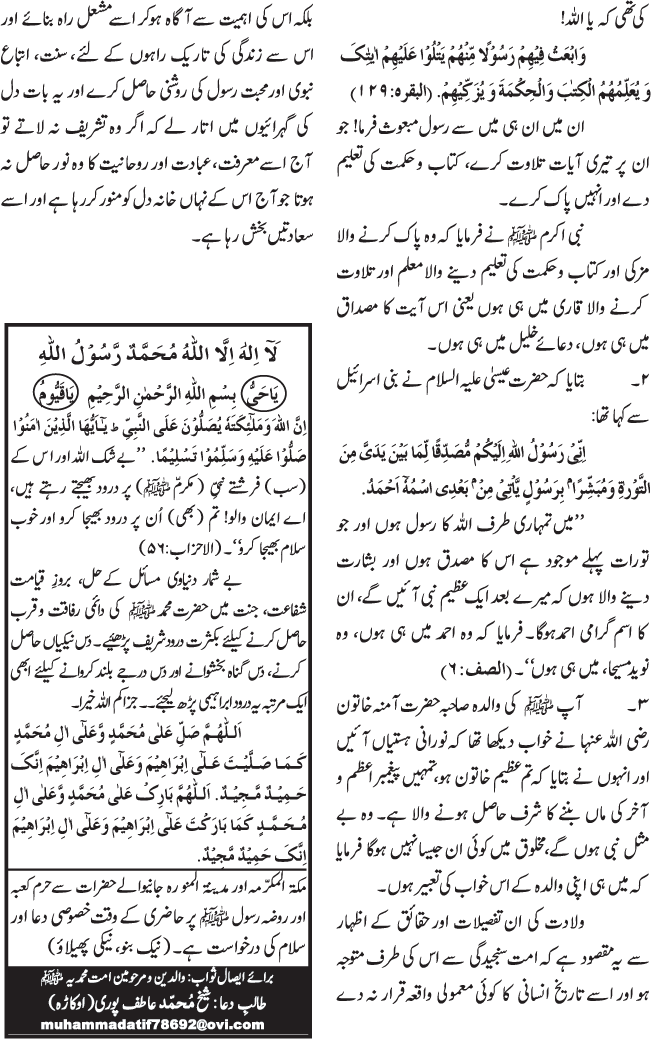 کی تھی کہ یا اللہ!
وَابْعَثْ فِیْهِمْ رَسُوْلًا مِّنْهُمْ یَتْلُوْا عَلَیْهِمْ اٰیٰتِکَ
وَ یُعَلِّمُهُمُ الْکِتٰبَ وَالْحِکْمَةَ وَ یُزَکِّیْهِمْ. (البقرہ:۱۲۹)
ان میں ان ہی میں سے رسول مبعوث فرما! جو
ان پر تیری آیات تلاوت کرے، کتاب و حکمت کی تعلیم
دے اور انہیں پاک کرے۔
نبی اکرم ﷺ نے فرمایا کہ وہ پاک کرنے والا
مزکی اور کتاب و حکمت کی تعلیم دینے والا معلم اور تلاوت
کرنے والا قاری میں ہی ہوں یعنی اس آیت کا مصداق
میں ہی ہوں، دعائے خلیل میں ہی ہوں۔
۲۔ بتایا کہ حضرت عیسیٰ علیہ السلام نے بنی اسرائیل
سے کہا تھا:
اِنِّیْ رَسُوْلُ اللهِ اِلَیْکُمْ مُّصَدِّقًا لِّمَا بَیْنَ یَدَیَّ مِنَ
التَّوْرٰةِ وَمُبَشِّرًا م بِرَسُوْلٍ یَّاْتِیْ مِنْ م بَعْدِی اسْمُهٗ اَحْمَدُ.
’’میں تمہاری طرف اللہ کا رسول ہوں اور جو
تورات پہلے موجود ہے اس کا مصدق ہوں اور بشارت
دینے والا ہوں کہ میرے بعد ایک عظیم نبی آئیں گے، ان
کا اسم گرامی احمد ہوگا۔ فرمایا کہ وہ احمد میں ہی ہوں، وہ
نوید مسیحا، میں ہی ہوں‘‘۔ (الصف:۶)
۳۔ آپ ﷺ کی والدہ صاحبہ حضرت آمنہ خاتون
رضی اللہ عنہا نے خواب دیکھا تھا کہ نورانی ہستیاں آئیں
اور انہوں نے بتایا کہ تم عظیم خاتون ہو، تمہیں پیغمبر اعظم و
آخر کی ماں بننے کا شرف حاصل ہونے والا ہے۔ وہ بے
مثل نبی ہوں گے، مخلوق میں کوئی ان جیسا نہیں ہوگا فرمایا
کہ میں ہی اپنی والدہ کے اس خواب کی تعبیر ہوں۔
ولادت کی ان تفصیلات اور حقائق کے اظہار
سے یہ مقصود ہے کہ امت سنجیدگی سے اس کی طرف متوجہ
ہو اور اسے تاریخ انسانی کا کوئی معمولی واقعہ قرار نہ دے
بلکہ اس کی اہمیت سے آگاہ ہوکر اسے مشعل راہ بنائے اور
اس سے زندگی کی تاریک راہوں کے لئے، سنت، اتباع
نبوی اور محبت رسول کی روشنی حاصل کرے اور یہ بات دل
کی گہرائیوں میں اتار لے کہ اگر وہ تشریف نہ لاتے تو
آج اسے معرفت، عبادت اور روحانیت کا وہ نور حاصل نہ
ہوتا جو آج اس کے نہاں خانہ دل کو منور کررہا ہے اور اسے
سعادتیں بخش رہا ہے۔
لَآ اِلٰهَ اِلَّا اللهُ مُحَمَّدٌ رَّسُوْلُ اللهِ
یَاحَیُّ بِسْمِ اللهِ الرَّحْمٰنِ الرَّحِیْمِ یَاقَیُّوْمُ
اِنَّ اللهَ وَمَلٰٓئِکَتَهٗ یُصَلُّوْنَ عَلَی النَّبِیِّ ط یٰٓاَیُّهَا الَّذِیْنَ اٰمَنُوْا
صَلُّوْا عَلَیْهِ وَسَلِّمُوْا تَسْلِیْمًا. ’’بے شک اللہ اور اس کے
(سب) فرشتے نبیِّ (مکرّم ﷺ) پر درود بھیجتے رہتے ہیں،
اے ایمان والو! تم (بھی) اُن پر درود بھیجا کرو اور خوب
سلام بھیجا کرو‘‘۔ (الاحزاب:۵۶)
بے شمار دنیاوی مسائل کے حل، بروزِ قیامت
شفاعت، جنت میں حضرت محمد ﷺ کی دائمی رفاقت و قرب
حاصل کرنے کیلئے بکثرت درود شریف پڑھیے۔ دس نیکیاں حاصل
کرنے، دس گناہ بخشوانے اور دس درجے بلند کروانے کیلئے ابھی
ایک مرتبہ یہ درود ابراہیمی پڑھ لیجئے۔۔ جزاکم اللہ خیرا۔
اَللّٰهُمَّ صَلِّ عَلٰی مُحَمَّدٍ وَّعَلٰٓی اٰلِ مُحَمَّدٍ
کَمَا صَلَّیْتَ عَلٰٓی اِبْرَاهِیْمَ وَعَلٰٓی اٰلِ اِبْرَاهِیْمَ اِنَّکَ
حَمِیْدٌ مَّجِیْدٌ. اَللّٰهُمَّ بَارِکْ عَلٰی مُحَمَّدٍ وَّعَلٰٓی اٰلِ
مُحَمَّدٍ کَمَا بَارَکْتَ عَلٰٓی اِبْرَاهِیْمَ وَعَلٰٓی اٰلِ اِبْرَاهِیْمَ
اِنَّکَ حَمِیْدٌ مَّجِیْدٌ.
مکۃ المکرّمہ اور مدینۃ المنورہ جانیوالے حضرات سے حرم کعبہ
اور روضہ رسول ﷺ پر حاضری کے وقت خصوصی دعا اور
سلام کی درخواست ہے۔ (نیک بنو، نیکی پھیلاؤ)
برائے ایصال ثواب: والدین و مرحومین امت محمدیہ ﷺ
طالبِ دعا: شیخ محمد عاطف پوری (اوکاڑہ)
muhammadatif78692@ovi.com